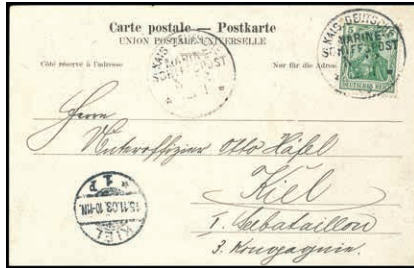 Carte postale — Postkarte
UNION POSTALE UNIVERSELLE
Côté réservé à l'adresse
Nur für die Adresse
KAIS. DEUTSCHE
MARINE-
SCHIFFSPOST
KAIS. DEUTSCHE
MARINE-
SCHIFFSPOST
DEUTSCHES REICH
Herrn
Unteroffizier Otto Häfel
Kiel
I. Seebataillon
3. Kompagnie.
KIEL
15.11.03.10-11N.
* 1 P